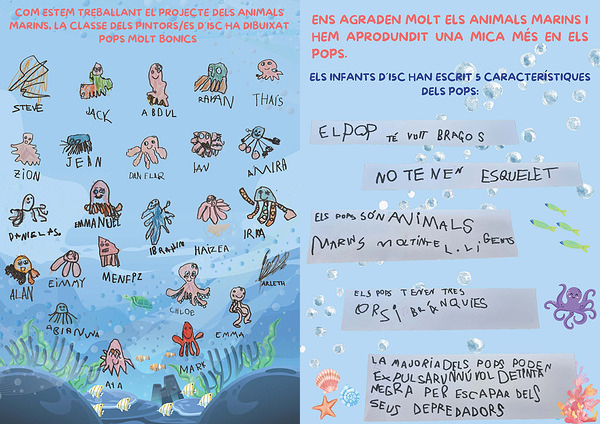 COM ESTEM TREBALLANT EL PROJECTE DELS ANIMALS
MARINS, LA CLASSE DELS PINTORS/ES D'I5C HA DIBUIXAT
POPS MOLT BONICS
STEVE
JACK
ABDUL
RAYAN
THAÍS
ZION
JEAN
DAN FLAR
IAN
AMIRA
DANIELAS
EMMANUEL
IBRAHIM
HAIZEA
IRIA
ALAN
EIMMY
MENEPZ
CHLOE
ARLETH
ABIANNA
EMMA
AYA
MARK
ENS AGRADEN MOLT ELS ANIMALS MARINS I
HEM APRODUNDIT UNA MICA MÉS EN ELS
POPS.
ELS INFANTS D'I5C HAN ESCRIT 5 CARACTERÍSTIQUES
DELS POPS:
EL POP TÉ VUIT BRAÇOS
NO TENEN ESQUELET
ELS POPS SÓN ANIMALS
MARINS MOLT INTEL.LIGENTS
ELS POPS TENEN TRES
CORS I BRÀNQUIES
LA MAJORIA DELS POPS PODEN
EXPULSAR UN NÚVOL DE TINTA
NEGRA PER ESCAPAR DELS
SEUS DEPREDADORS